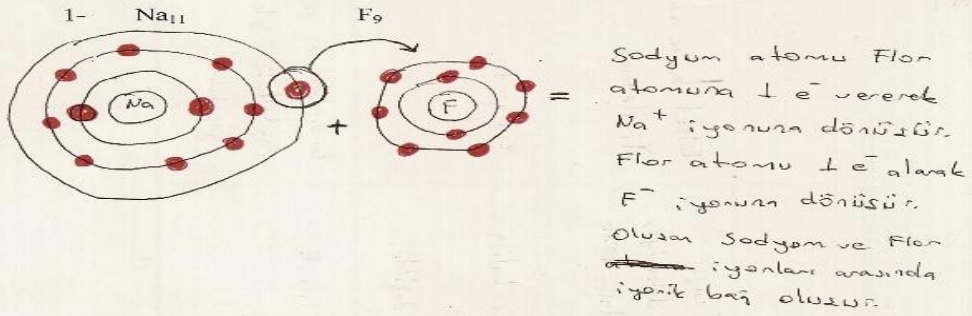 1- Na₁₁ F₉
Na
F
+
=
Sodyum atomu Flor
atomuna 1 e⁻ vererek
Na⁺ iyonuna dönüşür.
Flor atomu 1 e⁻ alarak
F⁻ iyonuna dönüşür.
Oluşan Sodyum ve Flor
iyonları arasında
iyonik bağ oluşur.